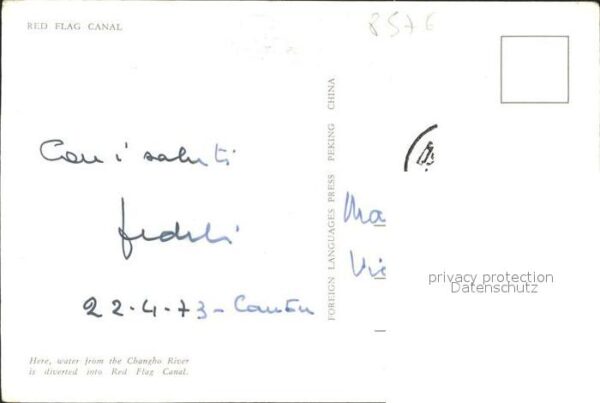 RED FLAG CANAL
8576
Con i saluti
fedeli
22-4-73 - Cantu
Here, water from the Changho River
is diverted into Red Flag Canal.
FOREIGN LANGUAGES PRESS PEKING CHINA
Ma
Vi
privacy protection
Datenschutz